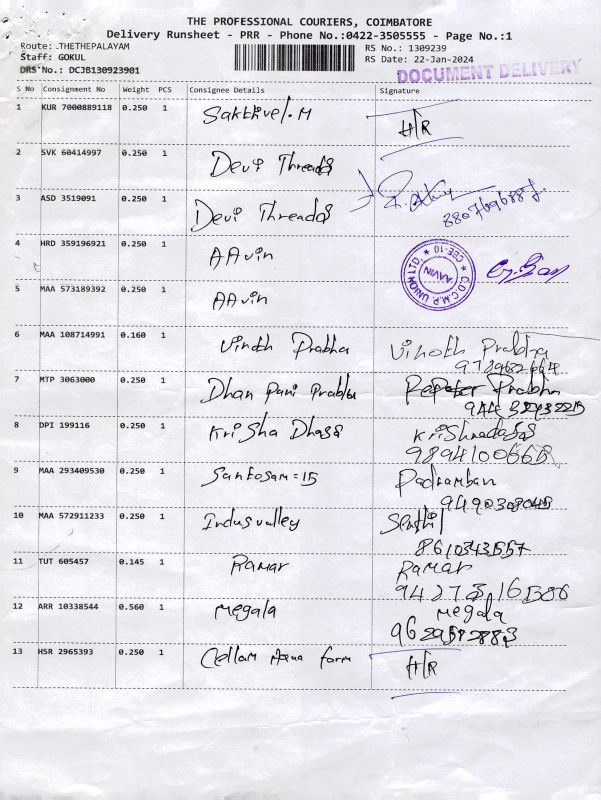 THE PROFESSIONAL COURIERS, COIMBATORE
Delivery Runsheet - PRR - Phone No.:0422-3505555 - Page No.:1
Route: .THETHEPALAYAM RS No.: 1309239
Staff: GOKUL RS Date: 22-Jan-2024
DRS No.: DCJB130923901 DOCUMENT DELIVERY
S No Consignment No Weight PCS Consignee Details Signature
1 KUR 7000889118 0.250 1 Sakthivel.M H/R
2 SVK 60414997 0.250 1 Devi Threads
3 ASD 3519091 0.250 1 Devi Threads
4 HRD 359196921 0.250 1 AAvin
C.D.C.M.P. UNION LTD. ★ CBE-10 ★ AAVIN
5 MAA 573189392 0.250 1 AAvin
6 MAA 108714991 0.160 1 Vinoth Prabha Vinoth Prabha
7 MTP 3063000 0.250 1 Dhan Pani Prabhu Prabhu
8 DPI 199116 0.250 1 Krisha Dhass Krishnadass
9 MAA 293409530 0.250 1
10 MAA 572911233 0.250 1 Indusvalley Senthil
8610343557
11 TUT 605457 0.145 1 Ramar Ramar
12 ARR 10338544 0.560 1 Megala Megala
13 HSR 2965393 0.250 1 Cellam Aqua form H/R